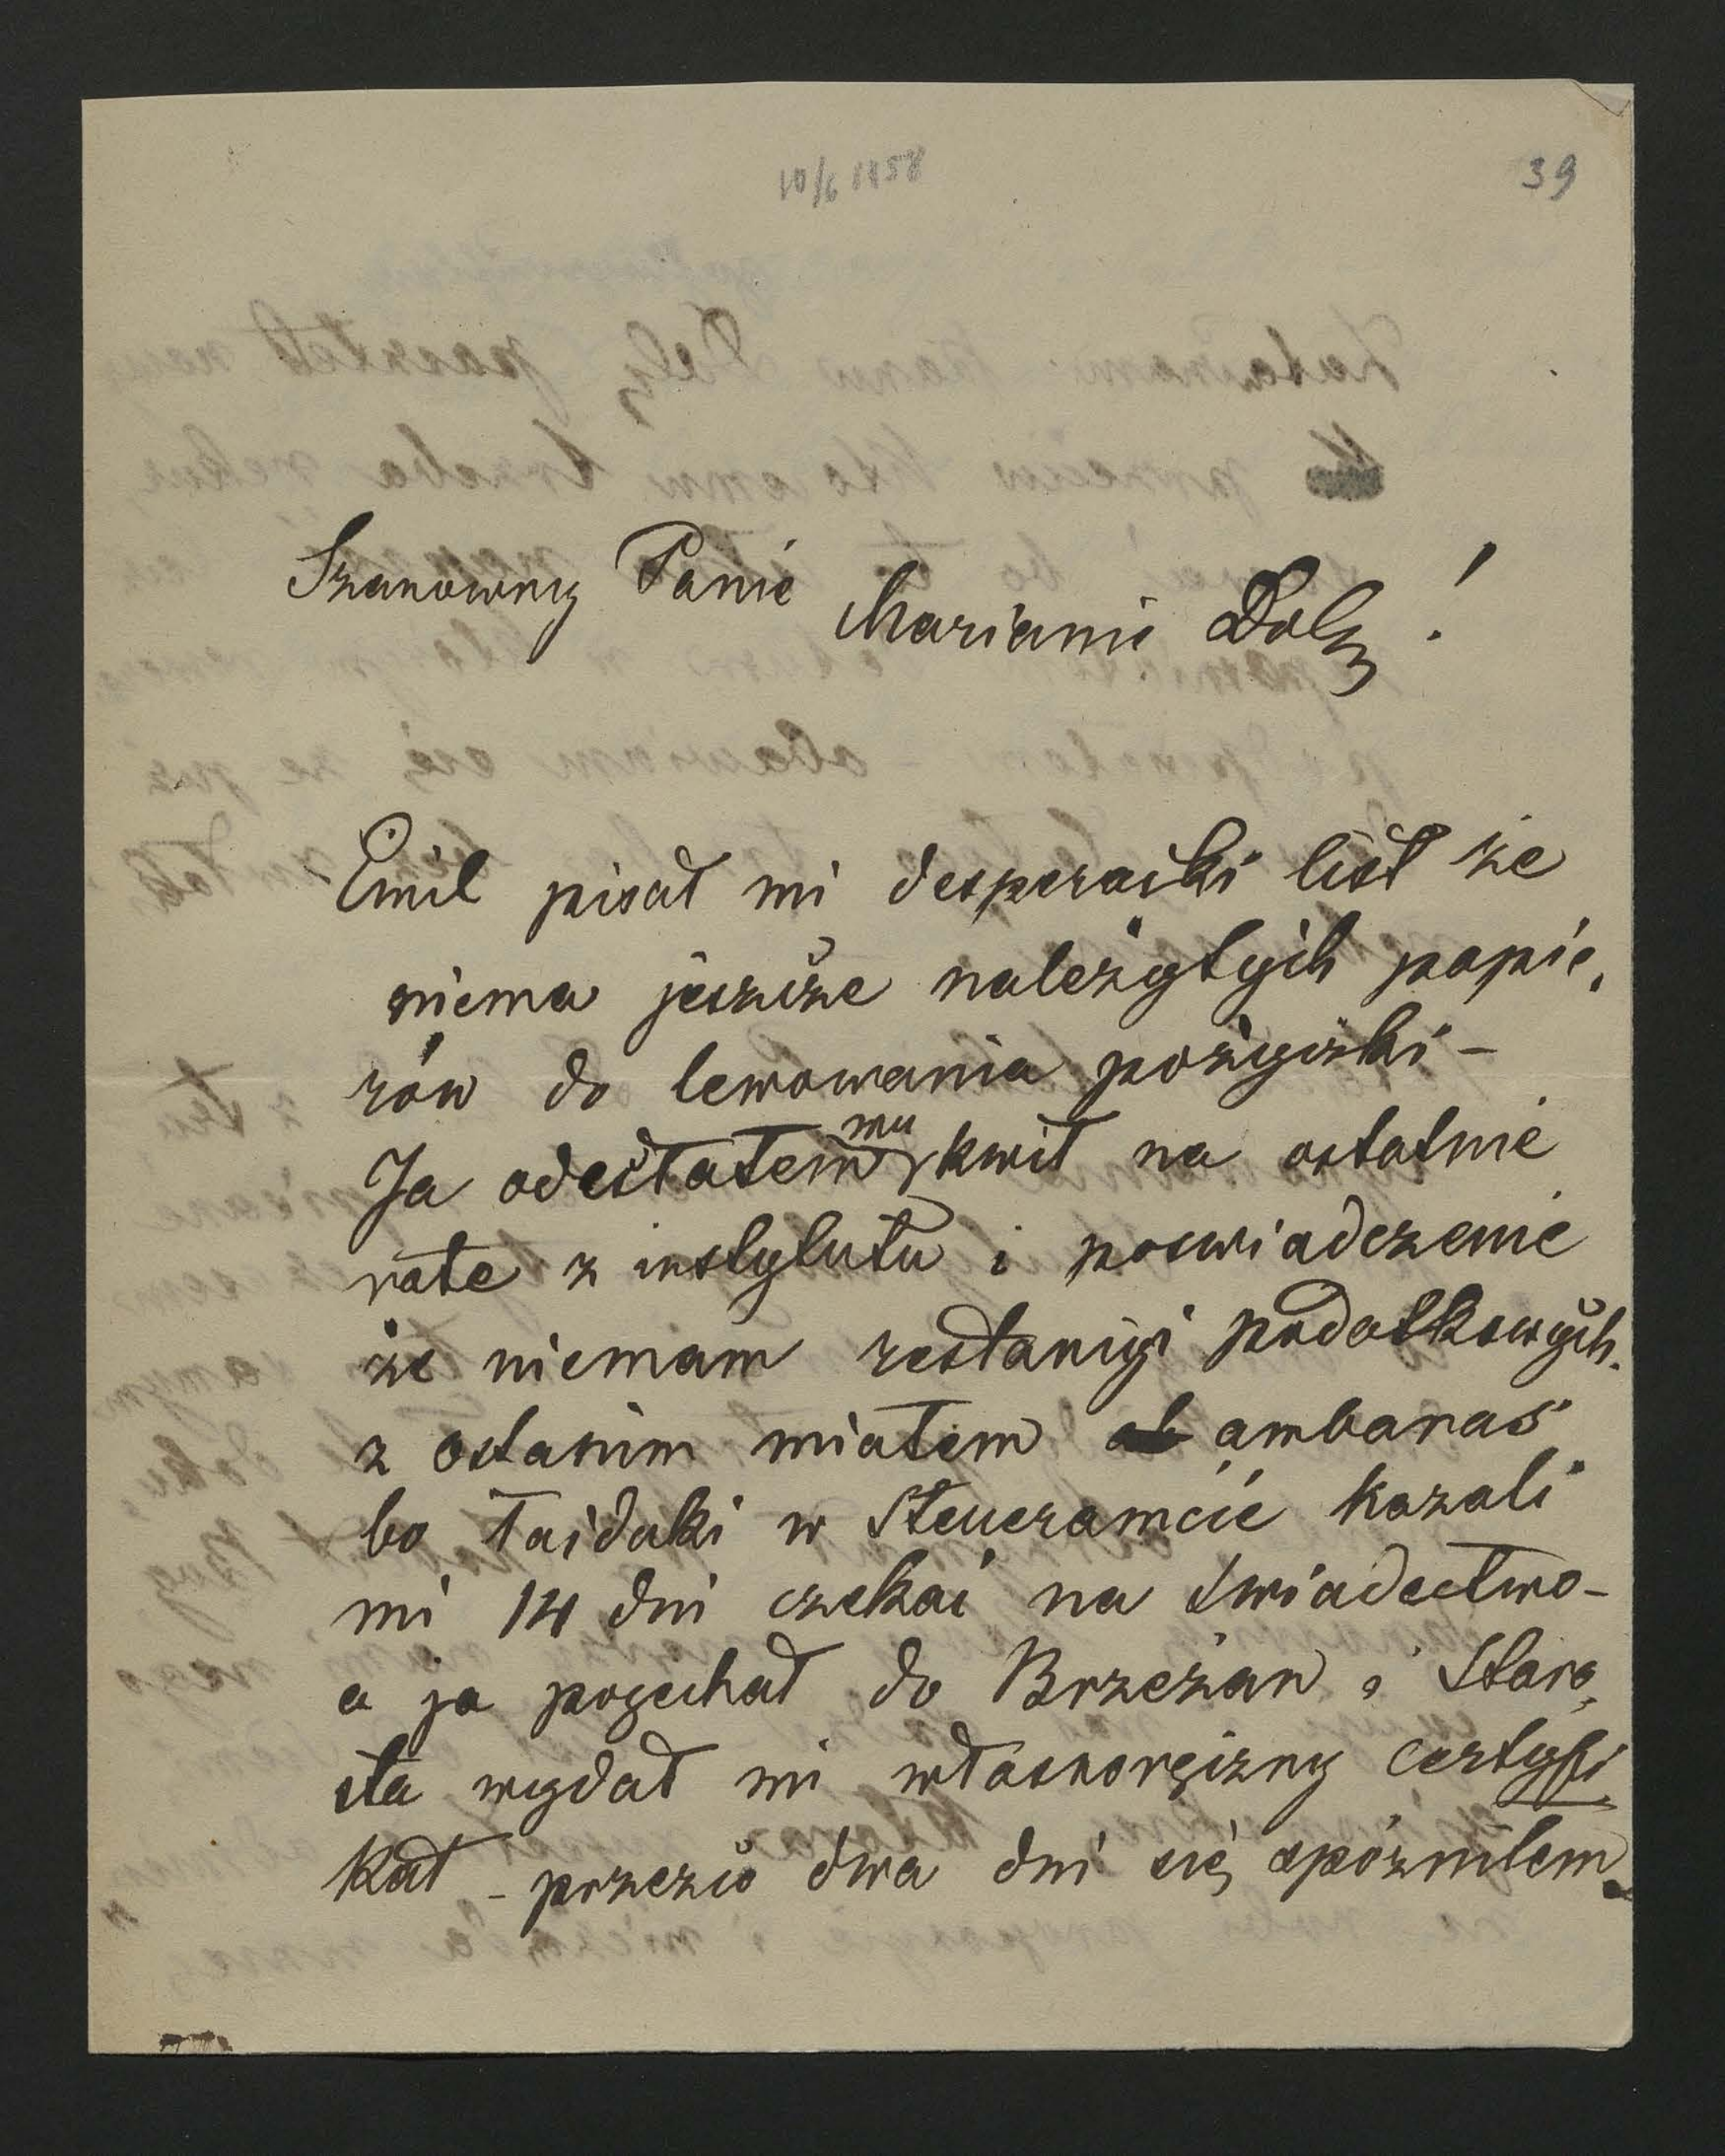 10/6 1858
39
Szanowny Panie Mariani Dolę!
Emil pisał mi desperacki list że
niema jeszcze należytych papie,
rów do lewowania pożyczki -
Ja odesłałem mu kwit na ostatnie
rate z instytutu i poswiadczenie
że niemam restancyi podatkowych.
z ostanim miałem ambaras
bo łajdaki w Steueramcie kazali
mi 14 dni czekać na świadectwo-
a ja pojechał do Brzeżan i Staro,
sta wydał mi własnoręczny certyfi
kat - przezco dwa dni się spóźniłem.